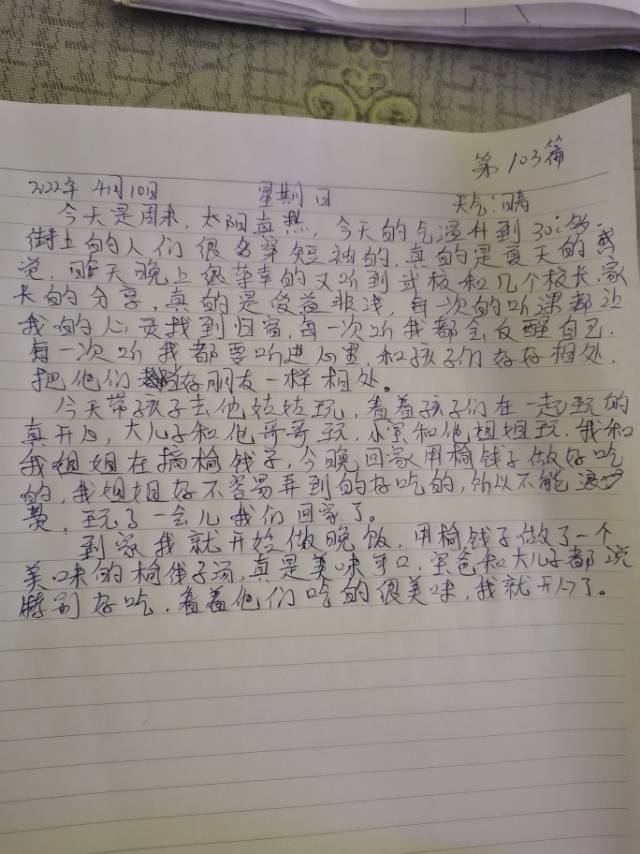 第103篇
2022年 4月10日 星期日 天气:晴
今天是周末,太阳真热,今天的气温升到30℃多,
街上的人们很多穿短袖的,真的是夏天的感
觉,昨天晚上很荣幸的又听到武校和几个校长,家
长的分享,真的是受益非浅,每一次的听课都让
我的心灵找到归宿,每一次听我都会反醒自己,
每一次听我都要听进心里,和孩子们好好相处,
把他们好朋友一样相处。
今天带孩子去他姑姑玩,看着孩子们在一起玩的
真开心,大儿子和他哥哥玩,小宝和他姐姐玩,我和
我姐姐在摘榆钱子,今晚回家用榆钱子做好吃
的,我姐姐好不容易弄到的好吃的,所以不能浪
费,玩了一会儿我们回家了。
到家我就开始做晚饭,用榆钱子做了一个
美味的榆钱子汤,真是美味可口,宝爸和大儿子都说
特别好吃,看着他们吃的很美味,我就开心了。